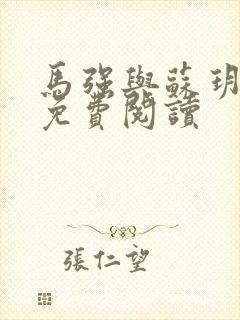 馬強與蘇玥
免費閱讀
張仁望